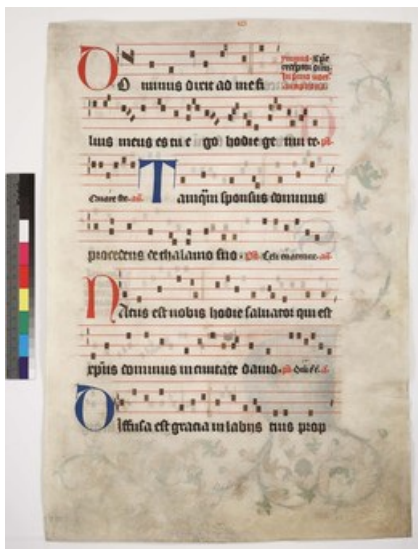 Dominus dixit ad me fi
lius meus es tu ego hodie ge nui te. ps
Quare fre. an. Tamqm sponsus dominus
procedens de thalamo suo. ps. Celi enarrant. an.
Natus est nobis hodie saluator qui est
xpus dominus in ciuitate dauid. ps.
Diffusa est gracia in labijs tuis prop